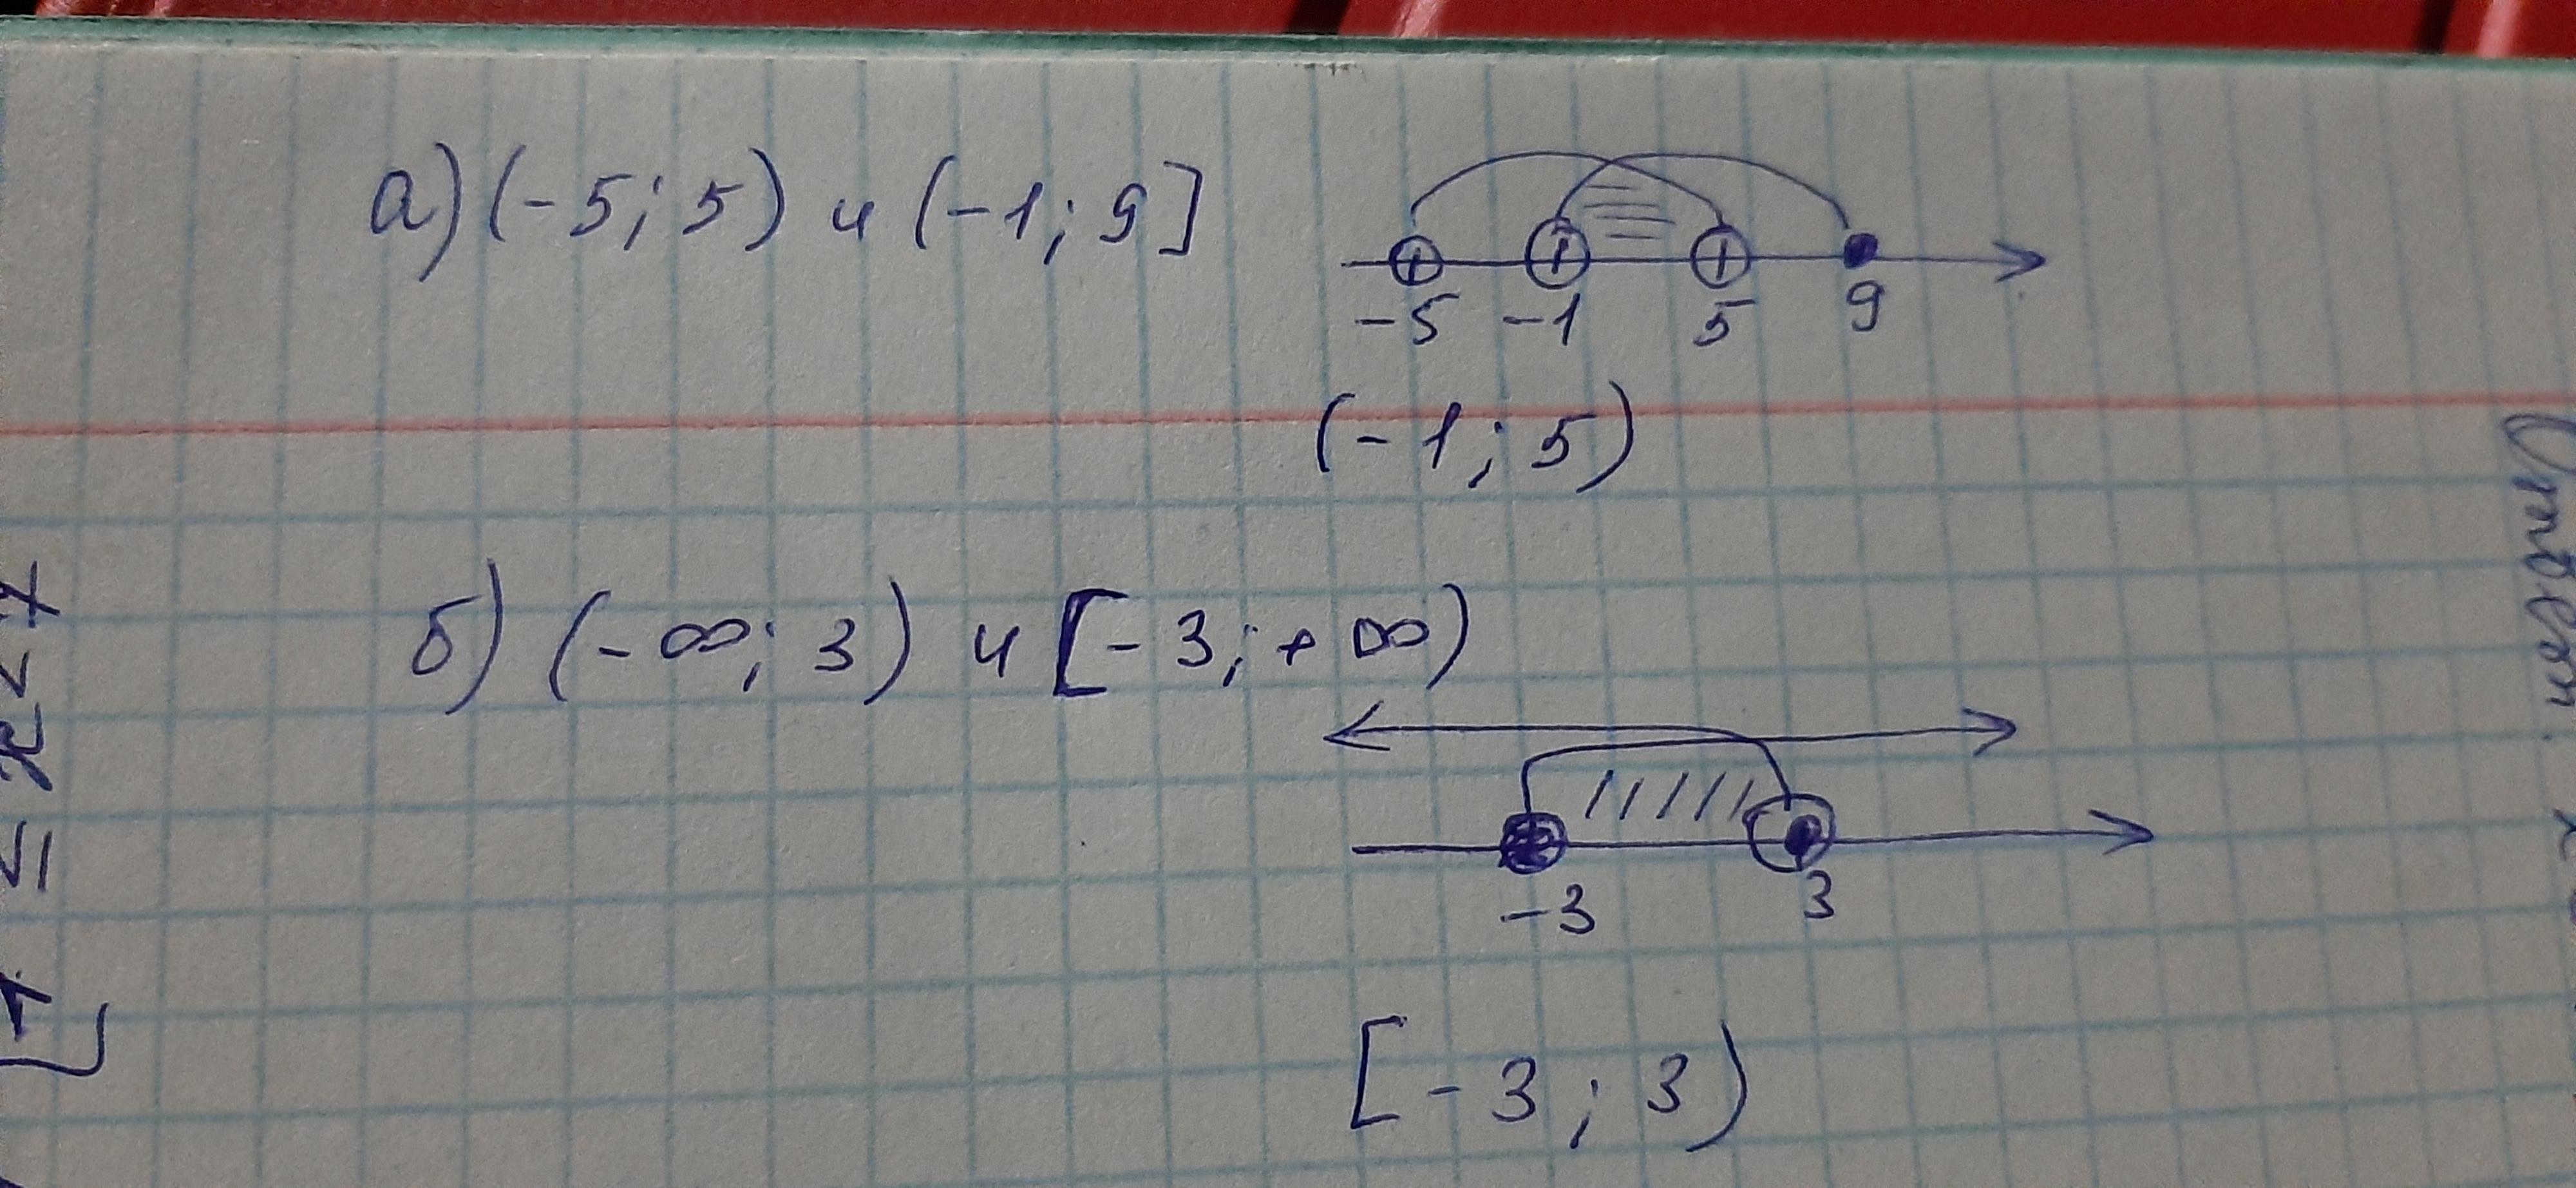 а) (-5; 5) и (-1; 9]
-5 -1 5 9
(-1; 5)
б) (-∞; 3) и [-3; +∞)
-3 3
[-3; 3)